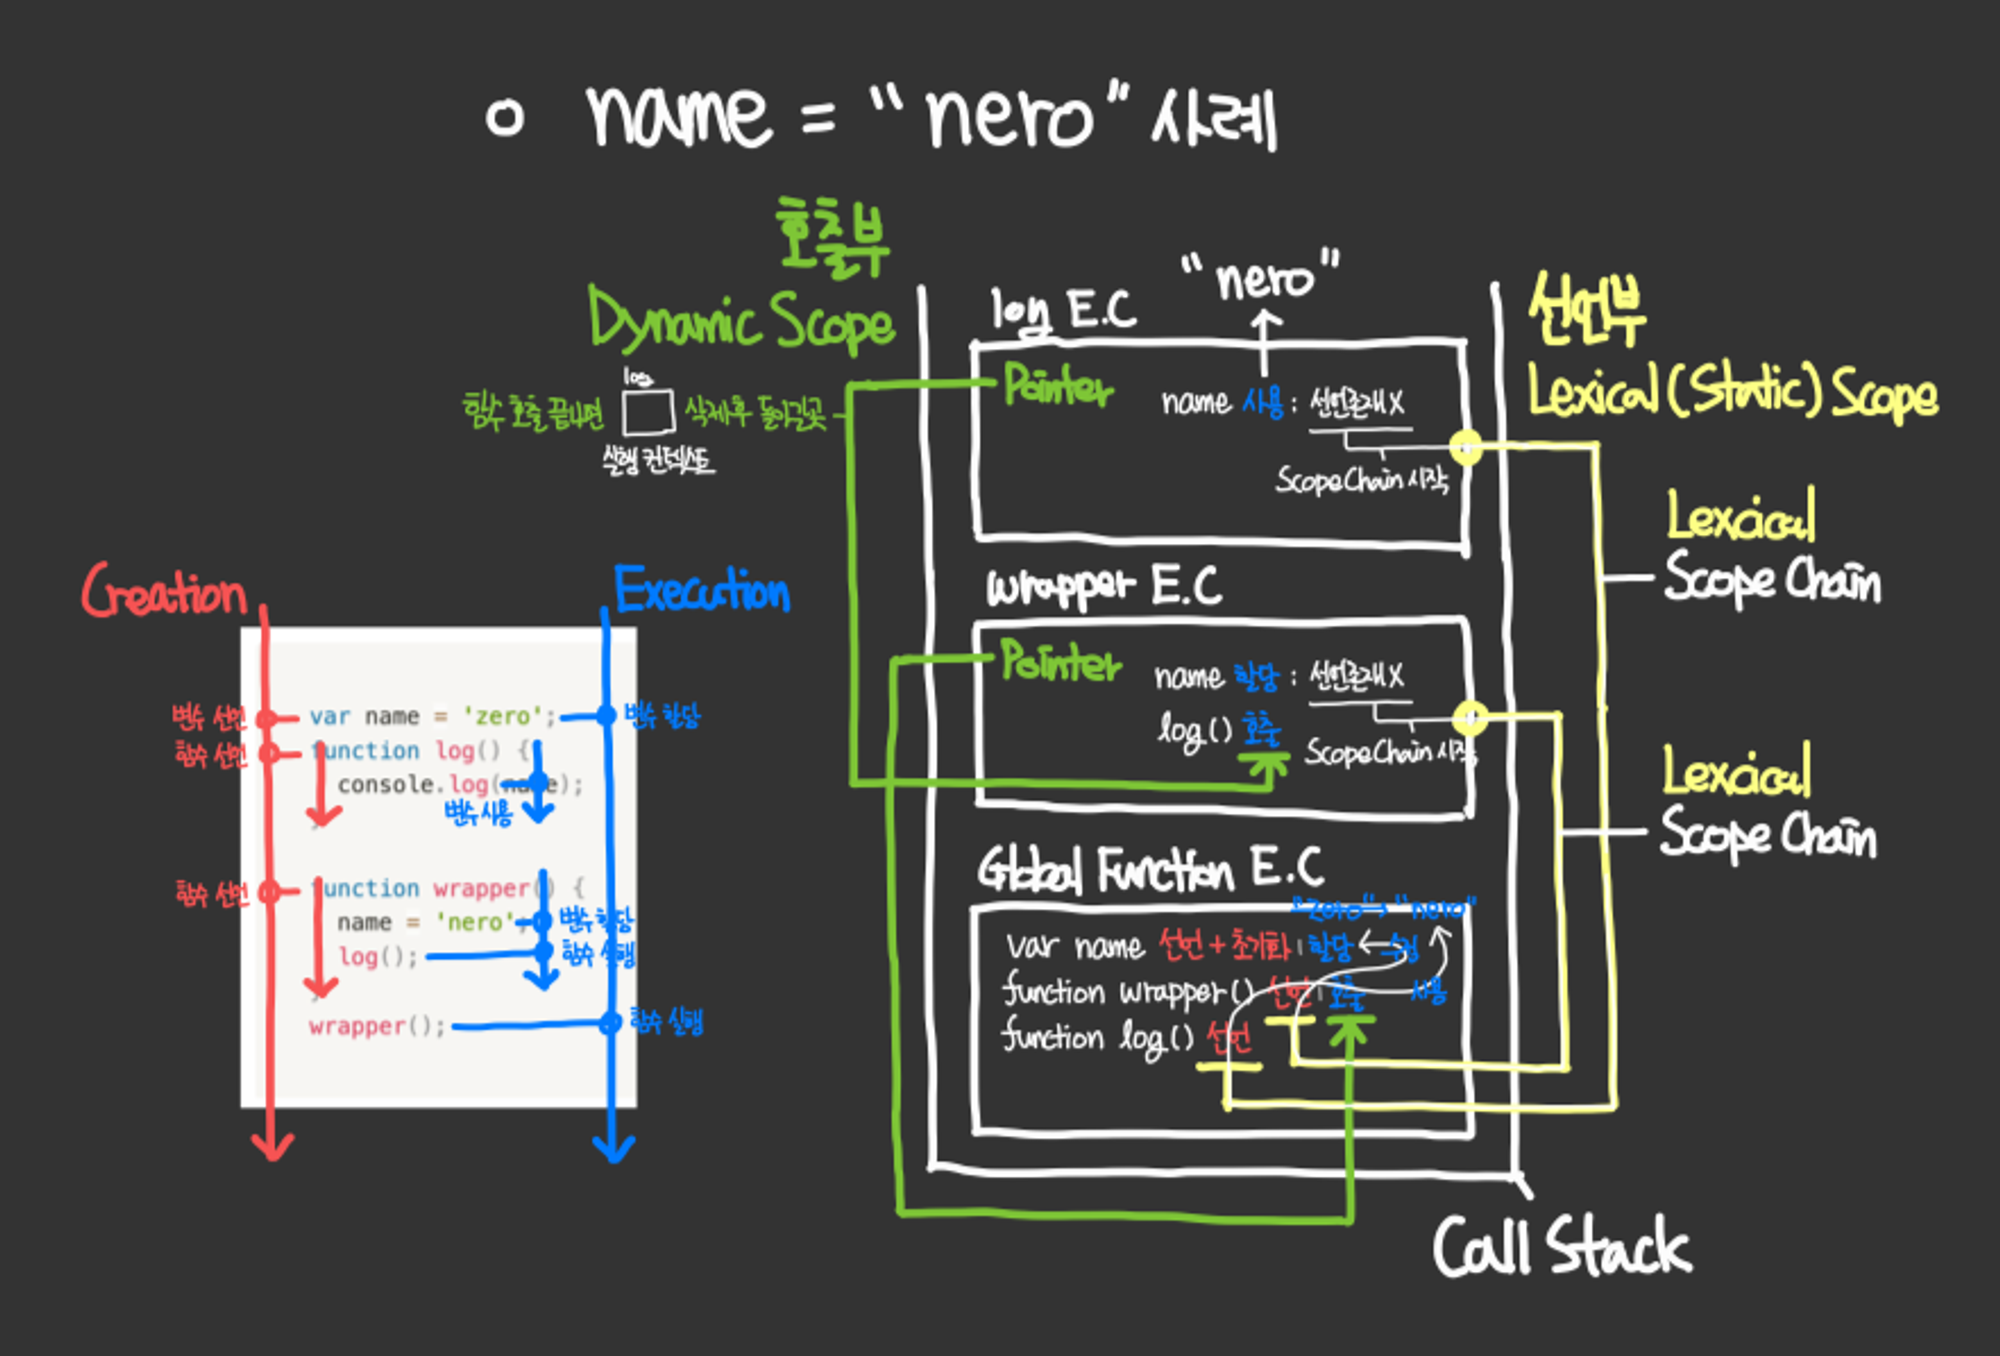 o name = "nero" 사례
호출부
Dynamic Scope
log
함수 호출 끝나면 삭제 후 돌아갈곳
실행 컨텍스트
"nero"
log E.C
Pointer
name 사용 : 선언존재X
ScopeChain 시작
선언부
Lexical (Static) Scope
Lexcical
Scope Chain
wrapper E.C
Pointer
name 할당 : 선언존재X
log() 호출
ScopeChain 시작
Lexcical
Scope Chain
Global Function E.C
"zero" → "nero"
var name 선언 + 초기화 | 할당 ← 수정
function wrapper() 선언 | 호출 사용
function log() 선언
Call Stack
Creation
Execution
변수 선언
var name = 'zero';
변수 할당
함수 선언
function log() {
console.log(name);
변수 사용
}
함수 선언
function wrapper() {
name = 'nero';
변수 할당
log();
함수 실행
}
wrapper();
함수 실행